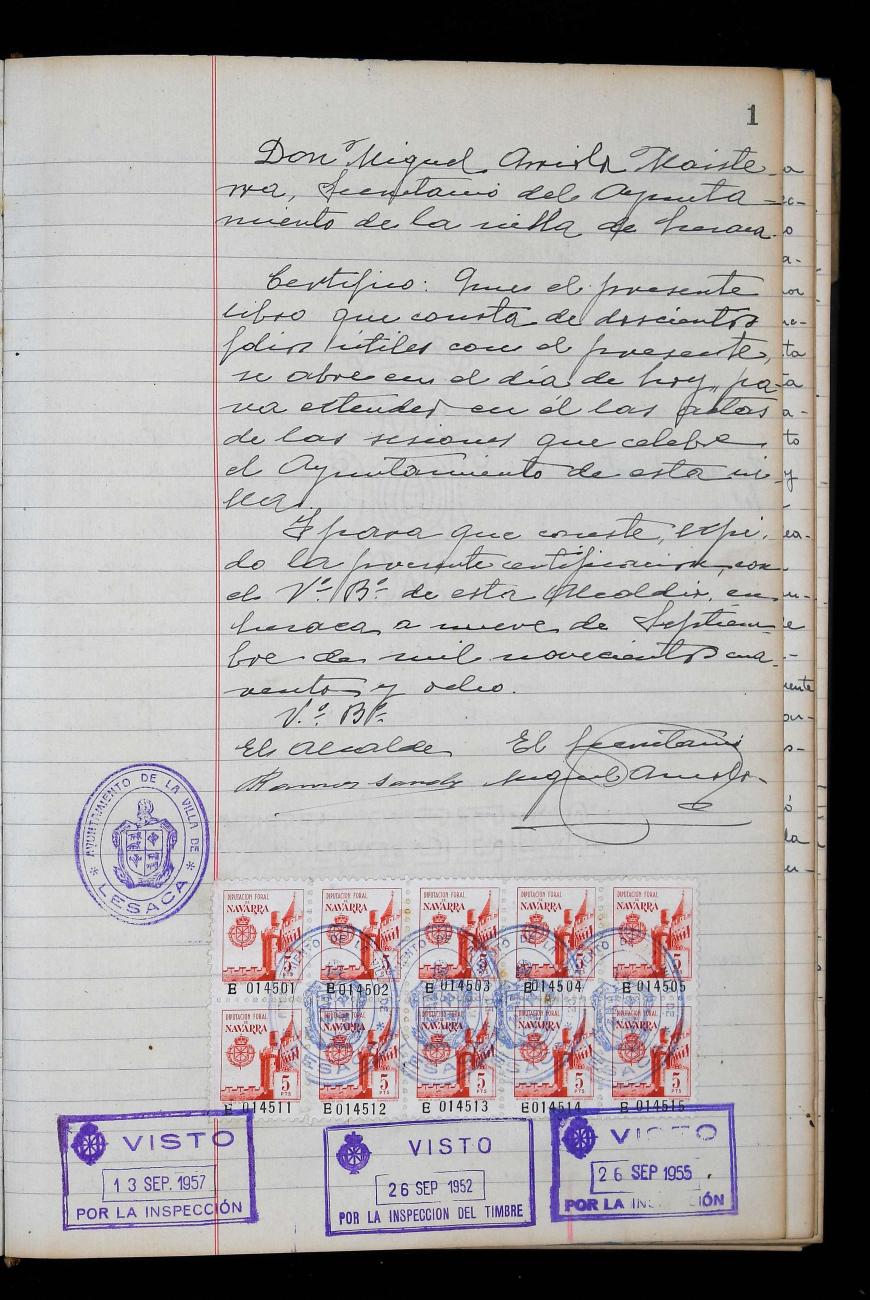 1
Don Miguel Arriola Maiste-
rra, Secretario del Ayunta-
miento de la villa de Lesaca.
Certifico: Que el presente
libro que consta de doscientos
folios útiles con el presente,
se abre en el día de hoy, pa-
ra estender en él las actas
de las sesiones que celebre
el Ayuntamiento de esta vi-
lla.
Y para que conste, expi-
do la presente certificacion, con
el Vº. Bº. de esta Alcaldia, en
Lesaca a nueve de Septiem-
bre de mil novecientos cua-
renta y ocho.
Vº. Bº.
El Alcalde El Secretario
Ramon Miguel Arriola
AYUNTAMIENTO DE LA VILLA DE
* LESACA *
DIPUTACION FORAL DIPUTACION FORAL DIPUTACION FORAL DIPUTACION FORAL DIPUTACION FORAL
DE NAVARRA DE NAVARRA DE NAVARRA DE NAVARRA DE NAVARRA
5 5 5 5 5
E 014501 E 014502 E 014503 E 014504 E 014505
DIPUTACION FORAL DIPUTACION FORAL DIPUTACION FORAL DIPUTACION FORAL DIPUTACION FORAL
DE NAVARRA DE NAVARRA DE NAVARRA DE NAVARRA DE NAVARRA
5 PTS 5 PTS 5 PTS 5 PTS 5 PTS
E 014511 E 014512 E 014513 E 014514 E 014515
VISTO
13 SEP. 1957
POR LA INSPECCIÓN
VISTO
26 SEP 1952
POR LA INSPECCION DEL TIMBRE
VISTO
26 SEP 1955
POR LA INSPECCIÓN